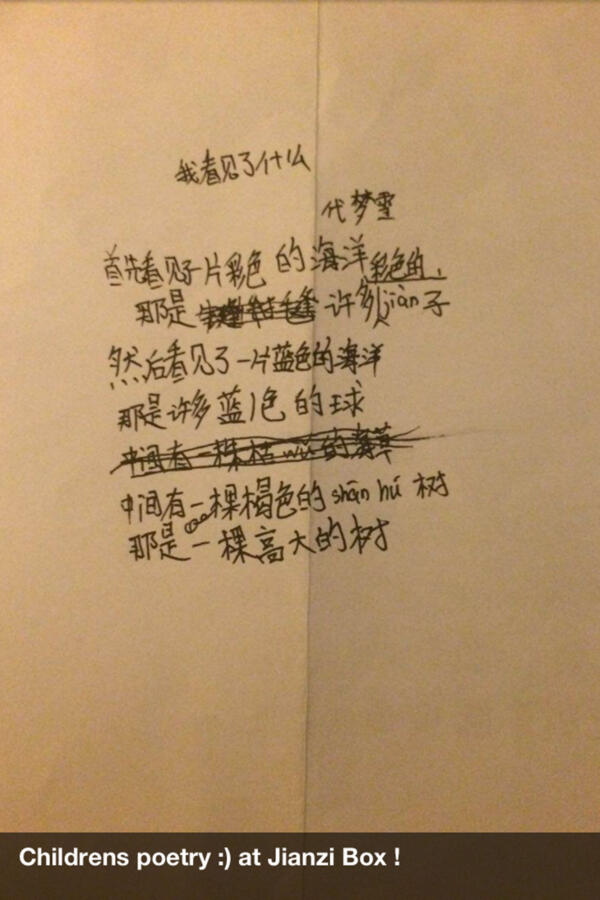 我看见了什么
代梦雪
首先看见了一片彩色的海洋彩色的,
那是 许多jiàn子
然后看见了一片蓝色的海洋
那是许多蓝色的球
中间有一棵枯wū的海草
中间有一棵褐色的shān hú 树
那是一棵高大的树
Childrens poetry :) at Jianzi Box !